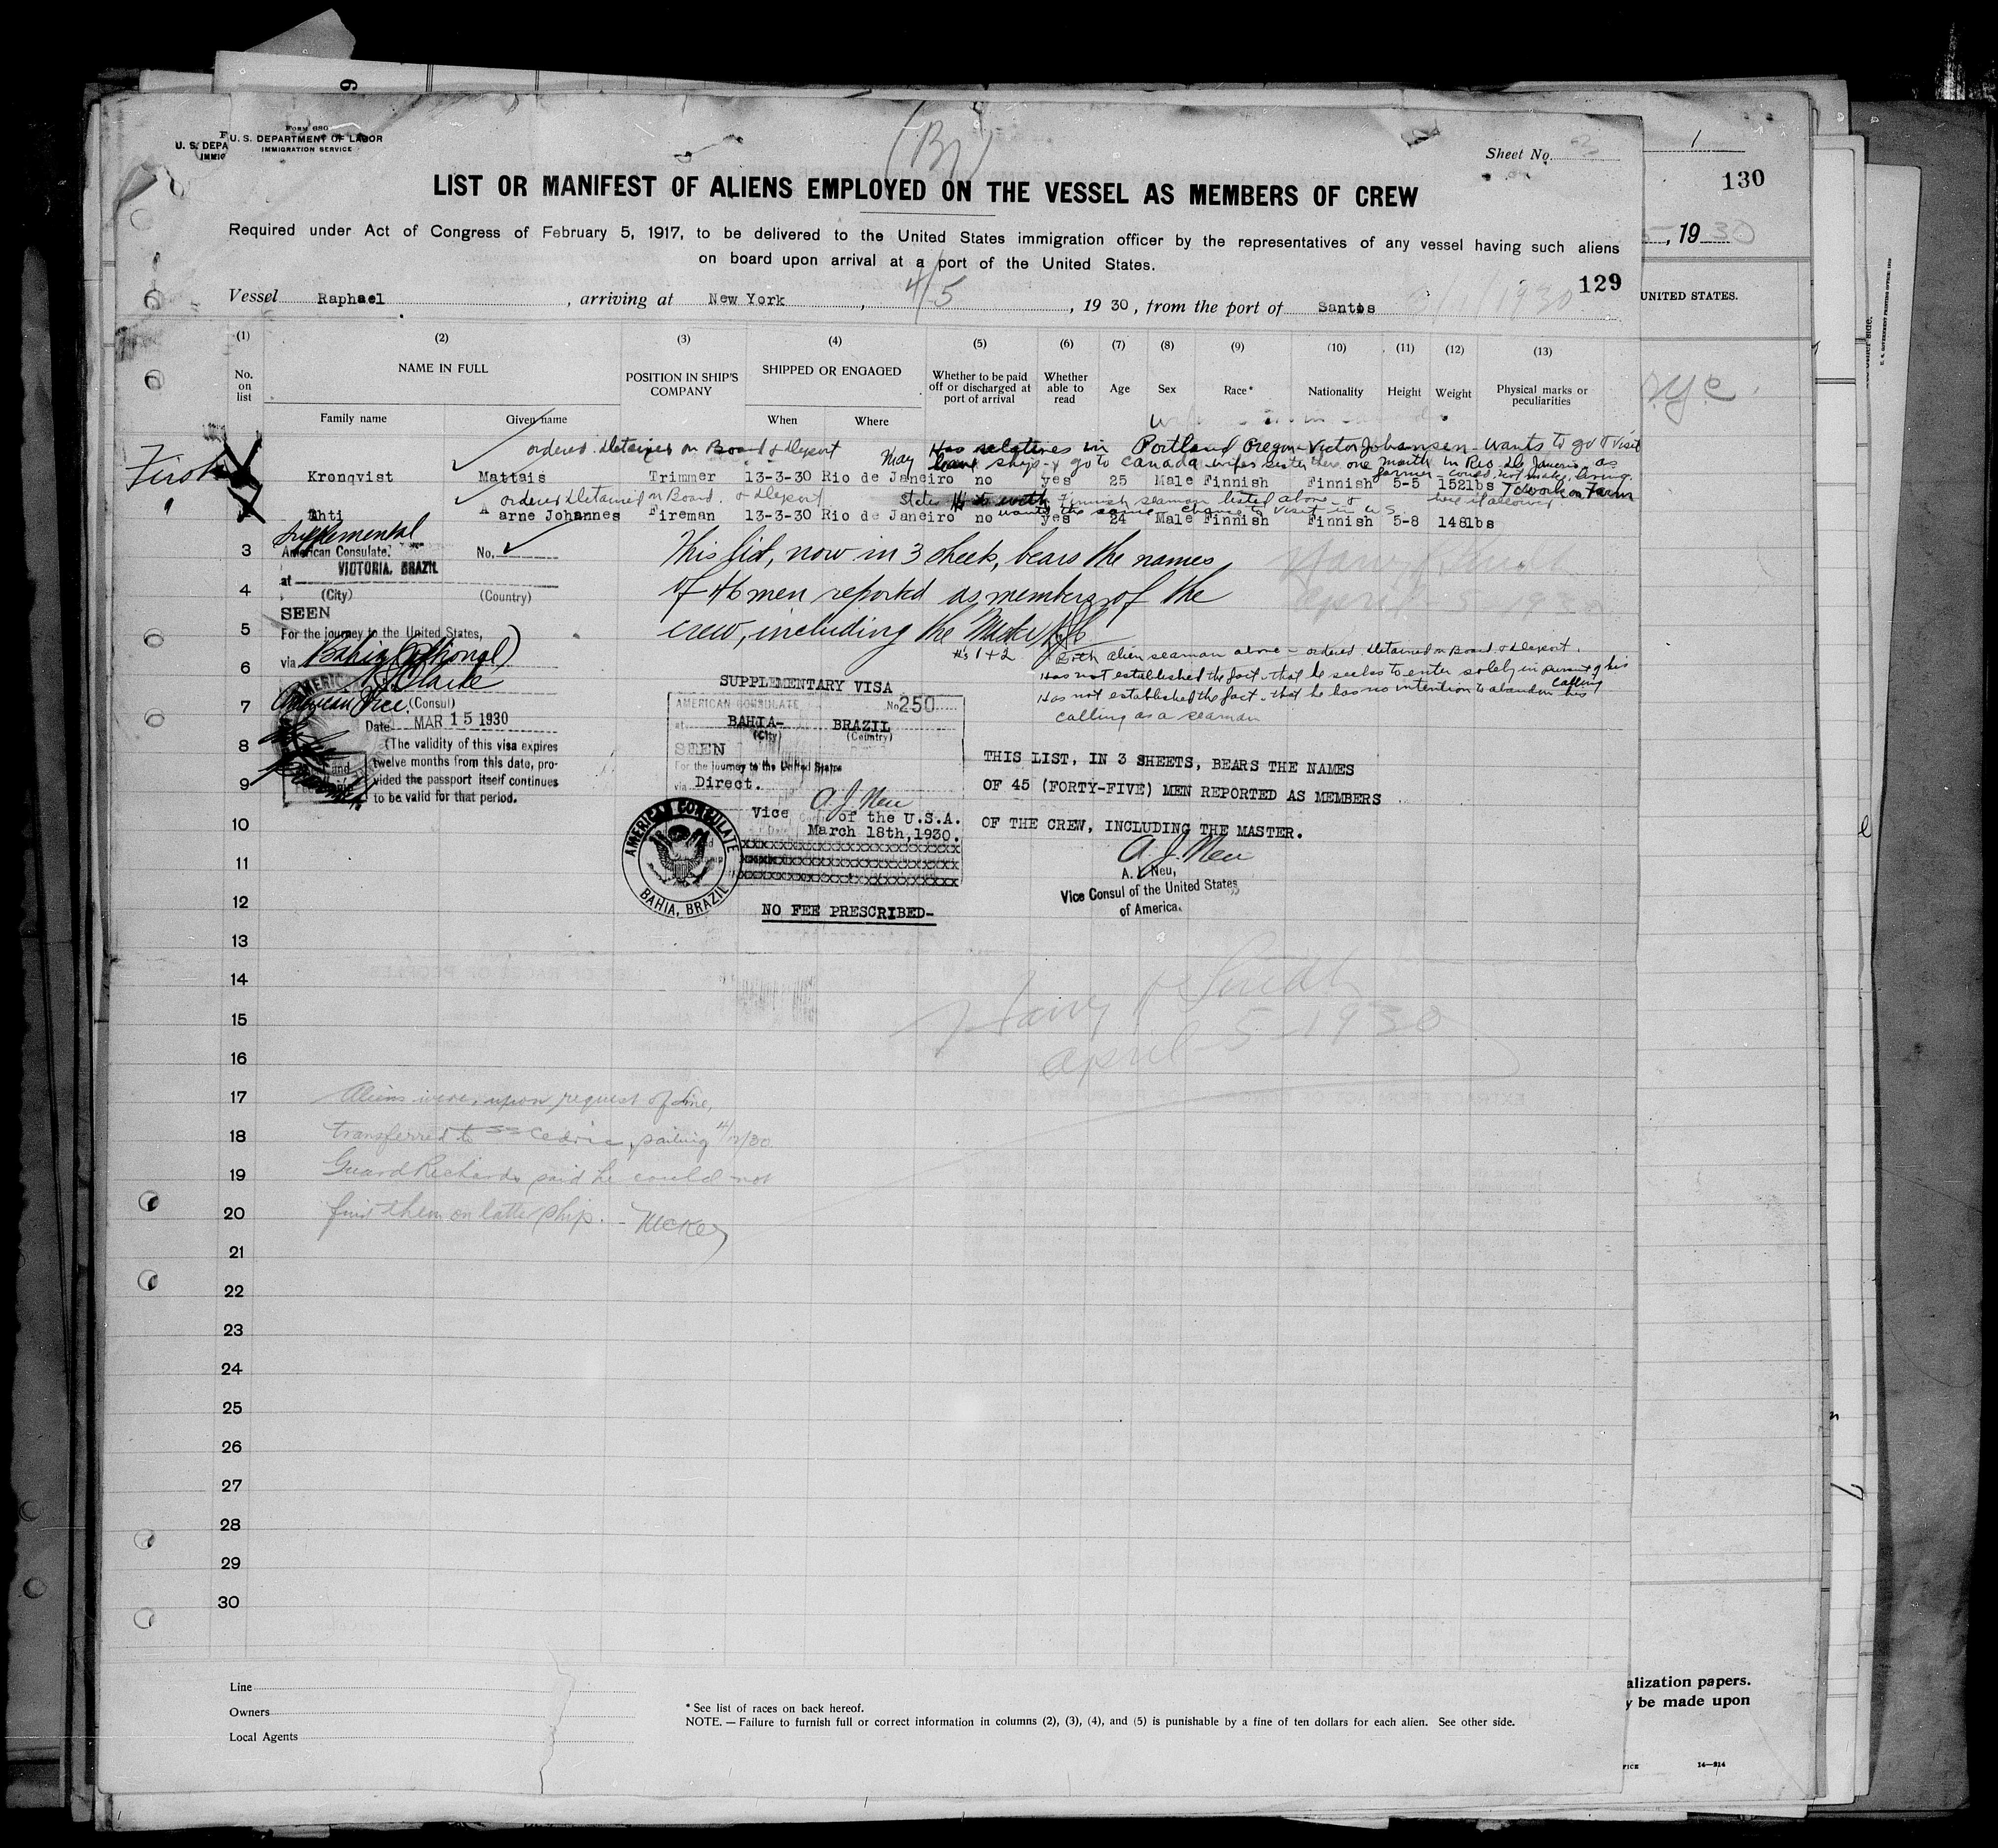 Form 680
U. S. DEPARTMENT OF LABOR
IMMIGRATION SERVICE
U. S. DEPA
IMMIG
(Br)
Sheet No. 3
1
130
LIST OR MANIFEST OF ALIENS EMPLOYED ON THE VESSEL AS MEMBERS OF CREW
Required under Act of Congress of February 5, 1917, to be delivered to the United States immigration officer by the representatives of any vessel having such aliens
on board upon arrival at a port of the United States.
, 19 30
129
Vessel Raphael , arriving at New York , 4/5 , 19 30, from the port of Santos 1930
UNITED STATES.
(1) (2) (3) (4) (5) (6) (7) (8) (9) (10) (11) (12) (13)
No. on list NAME IN FULL POSITION IN SHIP'S COMPANY SHIPPED OR ENGAGED Whether to be paid off or discharged at port of arrival Whether able to read Age Sex Race* Nationality Height Weight Physical marks or peculiarities
Family name Given name When Where
N.Y.C.
ordered detained on Board & deport Has relatives in Portland Oregon - Victor Johansen - wants to go & visit
First
May leave ship - & go to Canada wifes sister there one month in Rio De Janeiro - as
farmer - could not make living
Kronqvist Mattais Trimmer 13-3-30 Rio de Janeiro no yes 25 Male Finnish Finnish 5-5 152lbs To work on Farm
ordered detained on Board & deport states Finnish seaman listed above - & here if allowed
wants the same chance to visit in U.S.
Ahti Aarne Johannes Fireman 13-3-30 Rio de Janeiro no yes 24 Male Finnish Finnish 5-8 148lbs
Supplemental
3
American Consulate. No.
VICTORIA, BRAZIL
at
4
(City) (Country)
SEEN
5
For the journey to the United States,
6
via Bahia (optional)
Clarke
7
American Vice (Consul)
Date MAR 15 1930
8
(The validity of this visa expires
twelve months from this date, pro-
9
vided the passport itself continues
to be valid for that period.
This list, now in 3 sheets, bears the names
of 46 men reported as members of the
crew, including the Master
Harry H Smith
April 5 1930
#s 1 + 2 Both alien seaman above - ordered detained on Board & deport.
Has not established the fact - that he seeks to enter solely in pursuit of his
calling
Has not established the fact - that he has no intention to abandon his
calling as a seaman
SUPPLEMENTARY VISA
AMERICAN CONSULATE No 250
at BAHIA- BRAZIL
(City) (Country)
SEEN
For the journey to the United States
via Direct.
A. J. Neu
Vice Consul of the U.S.A.
Date March 18th, 1930.
xxxxxxxxxxxxxxxxxxxxxxxx
xxxxxxxxxxxxxxxxxxxxxxxx
xxxxxxxxxxxxxxxxxxxxxxxx
AMERICAN CONSULATE
BAHIA, BRAZIL
NO FEE PRESCRIBED-
THIS LIST, IN 3 SHEETS, BEARS THE NAMES
OF 45 (FORTY-FIVE) MEN REPORTED AS MEMBERS
OF THE CREW, INCLUDING THE MASTER.
A. J. Neu
A. J. Neu,
Vice Consul of the United States
of America.
10
11
12
13
14
15
16
Harry H Smith
April 5 1930
17
Aliens were, upon request of Line,
18
transferred to SS Cedric, sailing 4/12/30.
19
Guard Richards said he could not
20
find them on latter ship. - McKey
21
22
23
24
25
26
27
28
29
30
Line
Owners
Local Agents
* See list of races on back hereof.
NOTE. — Failure to furnish full or correct information in columns (2), (3), (4), and (5) is punishable by a fine of ten dollars for each alien. See other side.
alization papers.
y be made upon
14—214